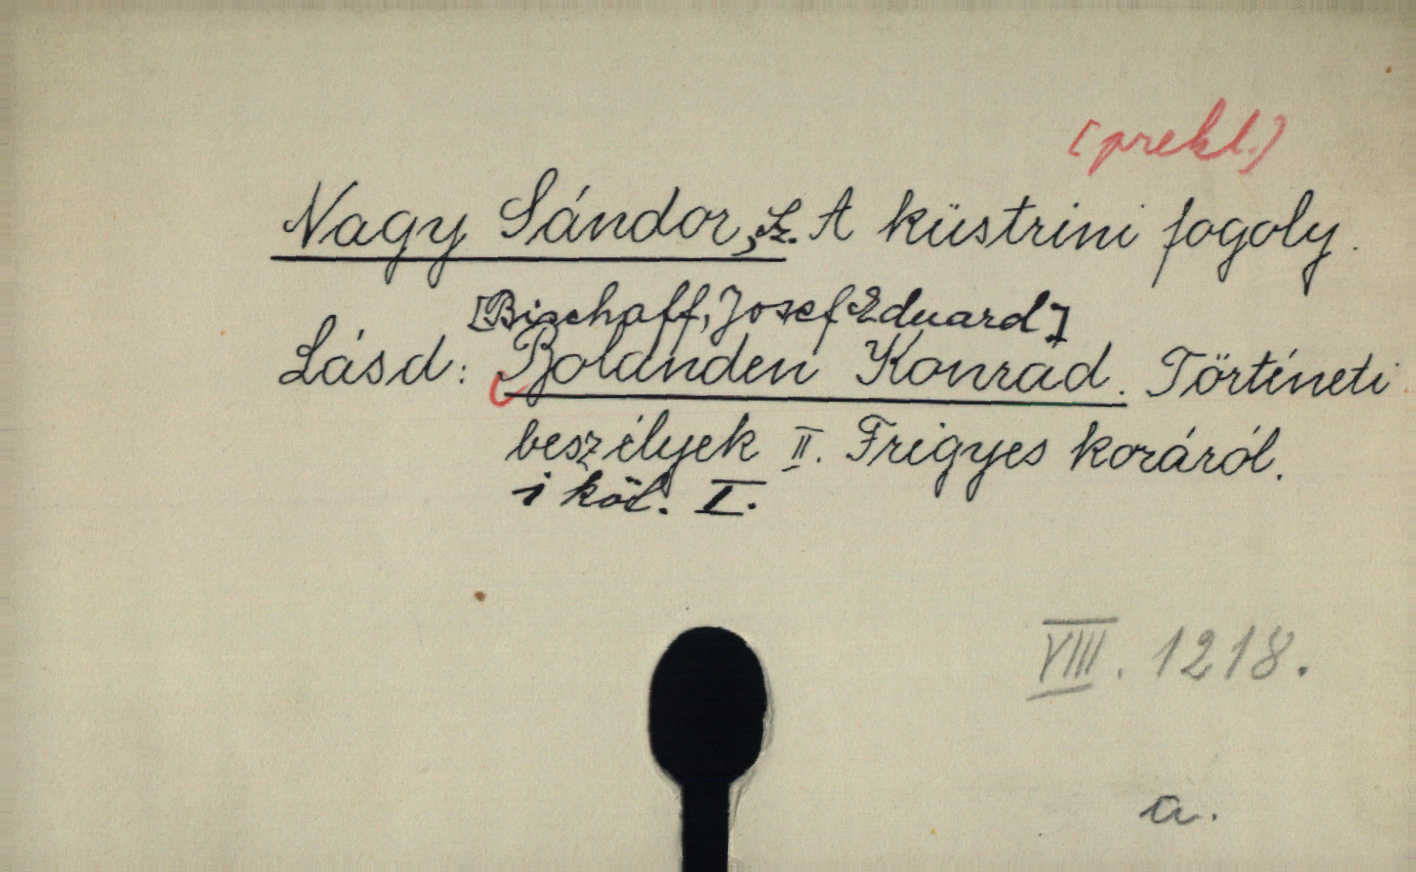 (prekl.)
Nagy Sándor, Sz. A küstrini fogoly.
[Bischoff, Josef Eduard]
Lásd: Bolanden Konrad. Történeti
beszélyek II. Frigyes koráról.
i köt. I.
VIII. 1218.
a.